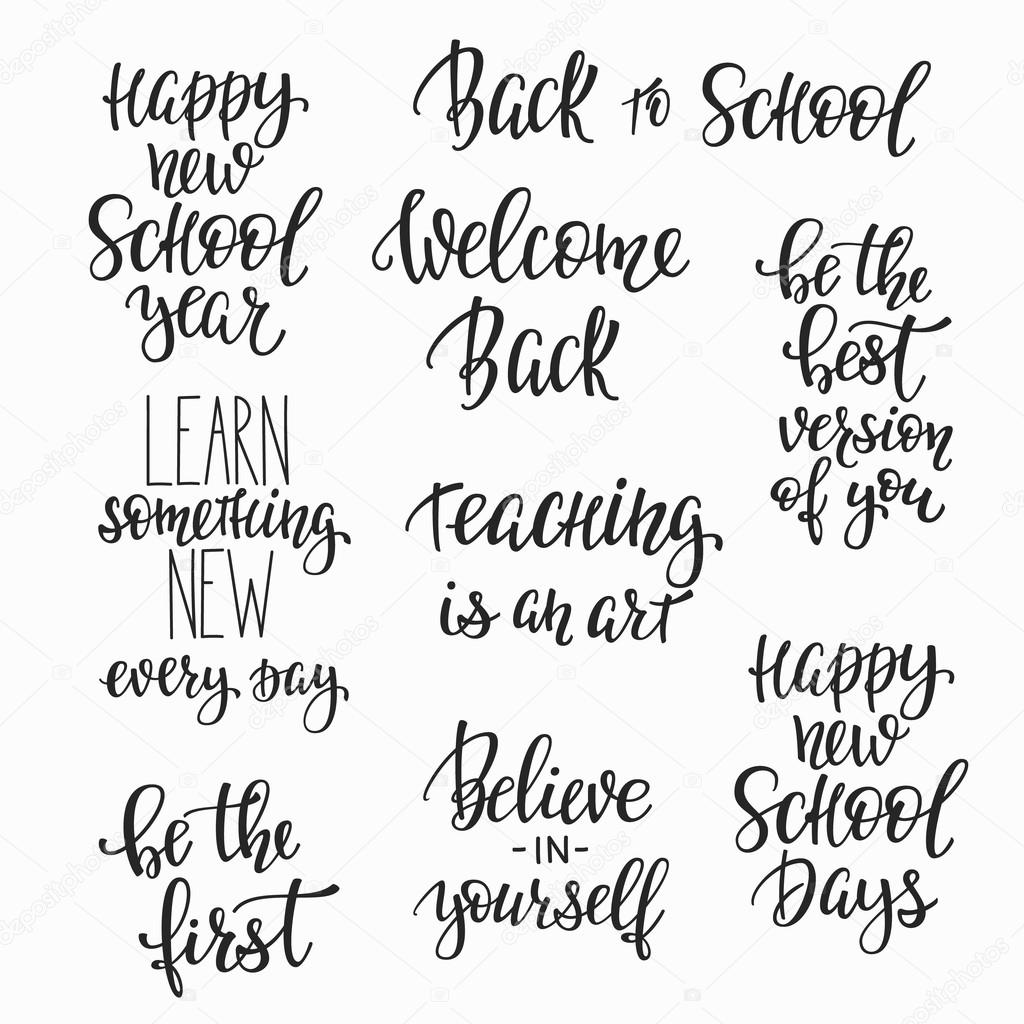 Happy
new
School
year
Back to School
Welcome
Back
be the
best
version
of you
LEARN
something
NEW
every day
Teaching
is an art
Happy
new
School
Days
be the
first
Believe
-IN-
yourself
depositphotos